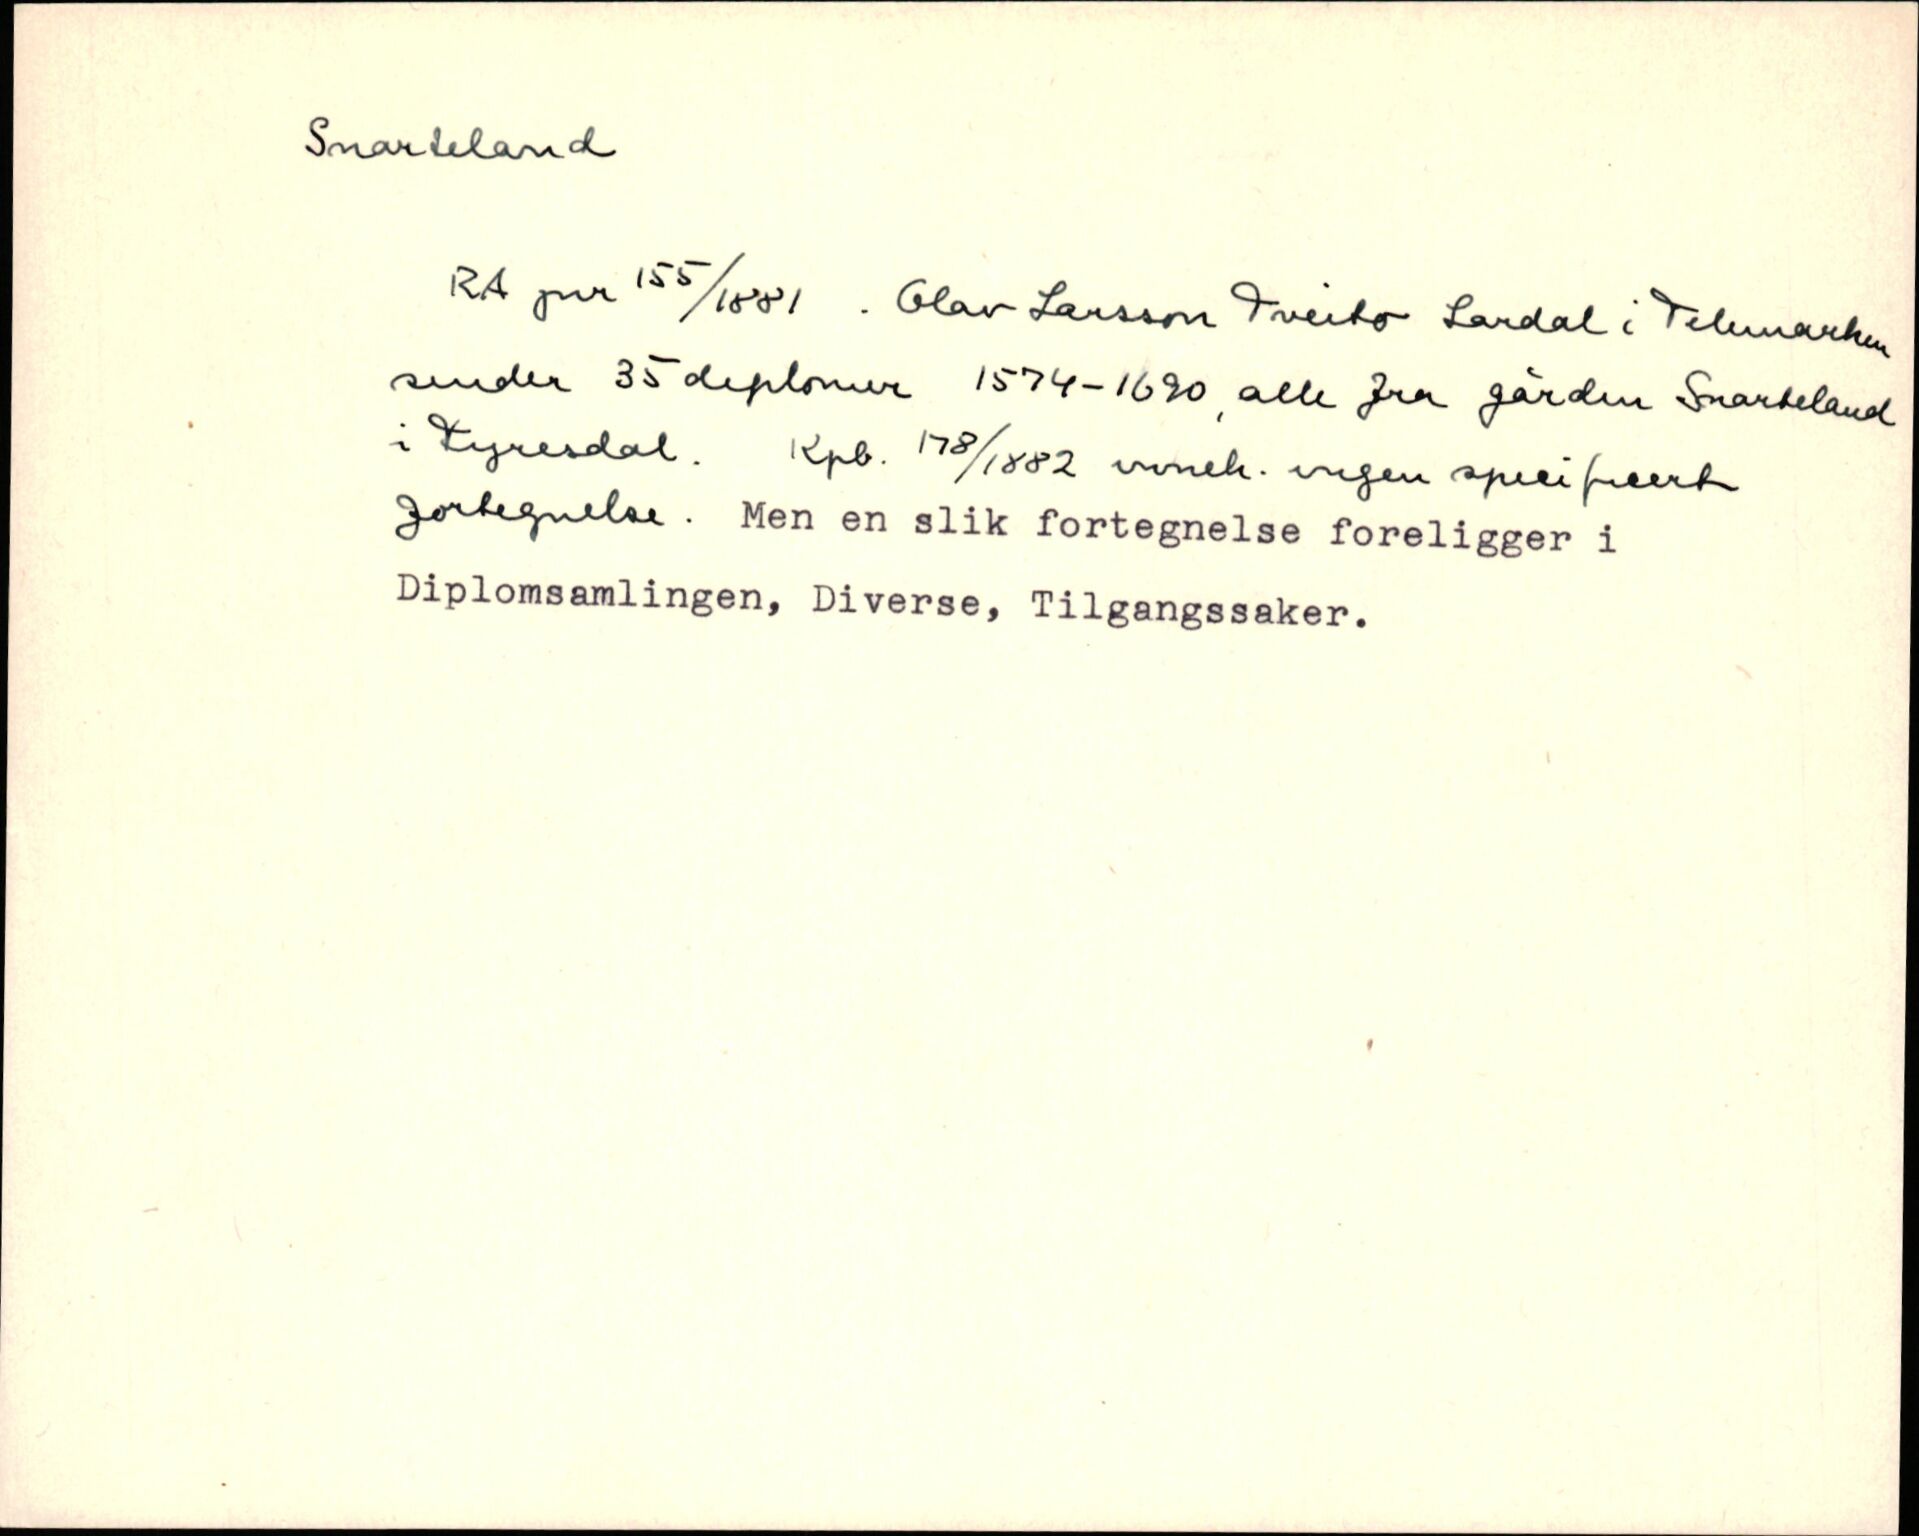 Snarteland
RA jnr 155/1881. Olav Larsson Tveito Lardal i Telemarken
sender 35 diplomer 1574-1690, alle fra gården Snarteland
i Tyresdal. Kpb. 178/1882 inneh. ingen specificert
fortegnelse. Men en slik fortegnelse foreligger i
Diplomsamlingen, Diverse, Tilgangssaker.